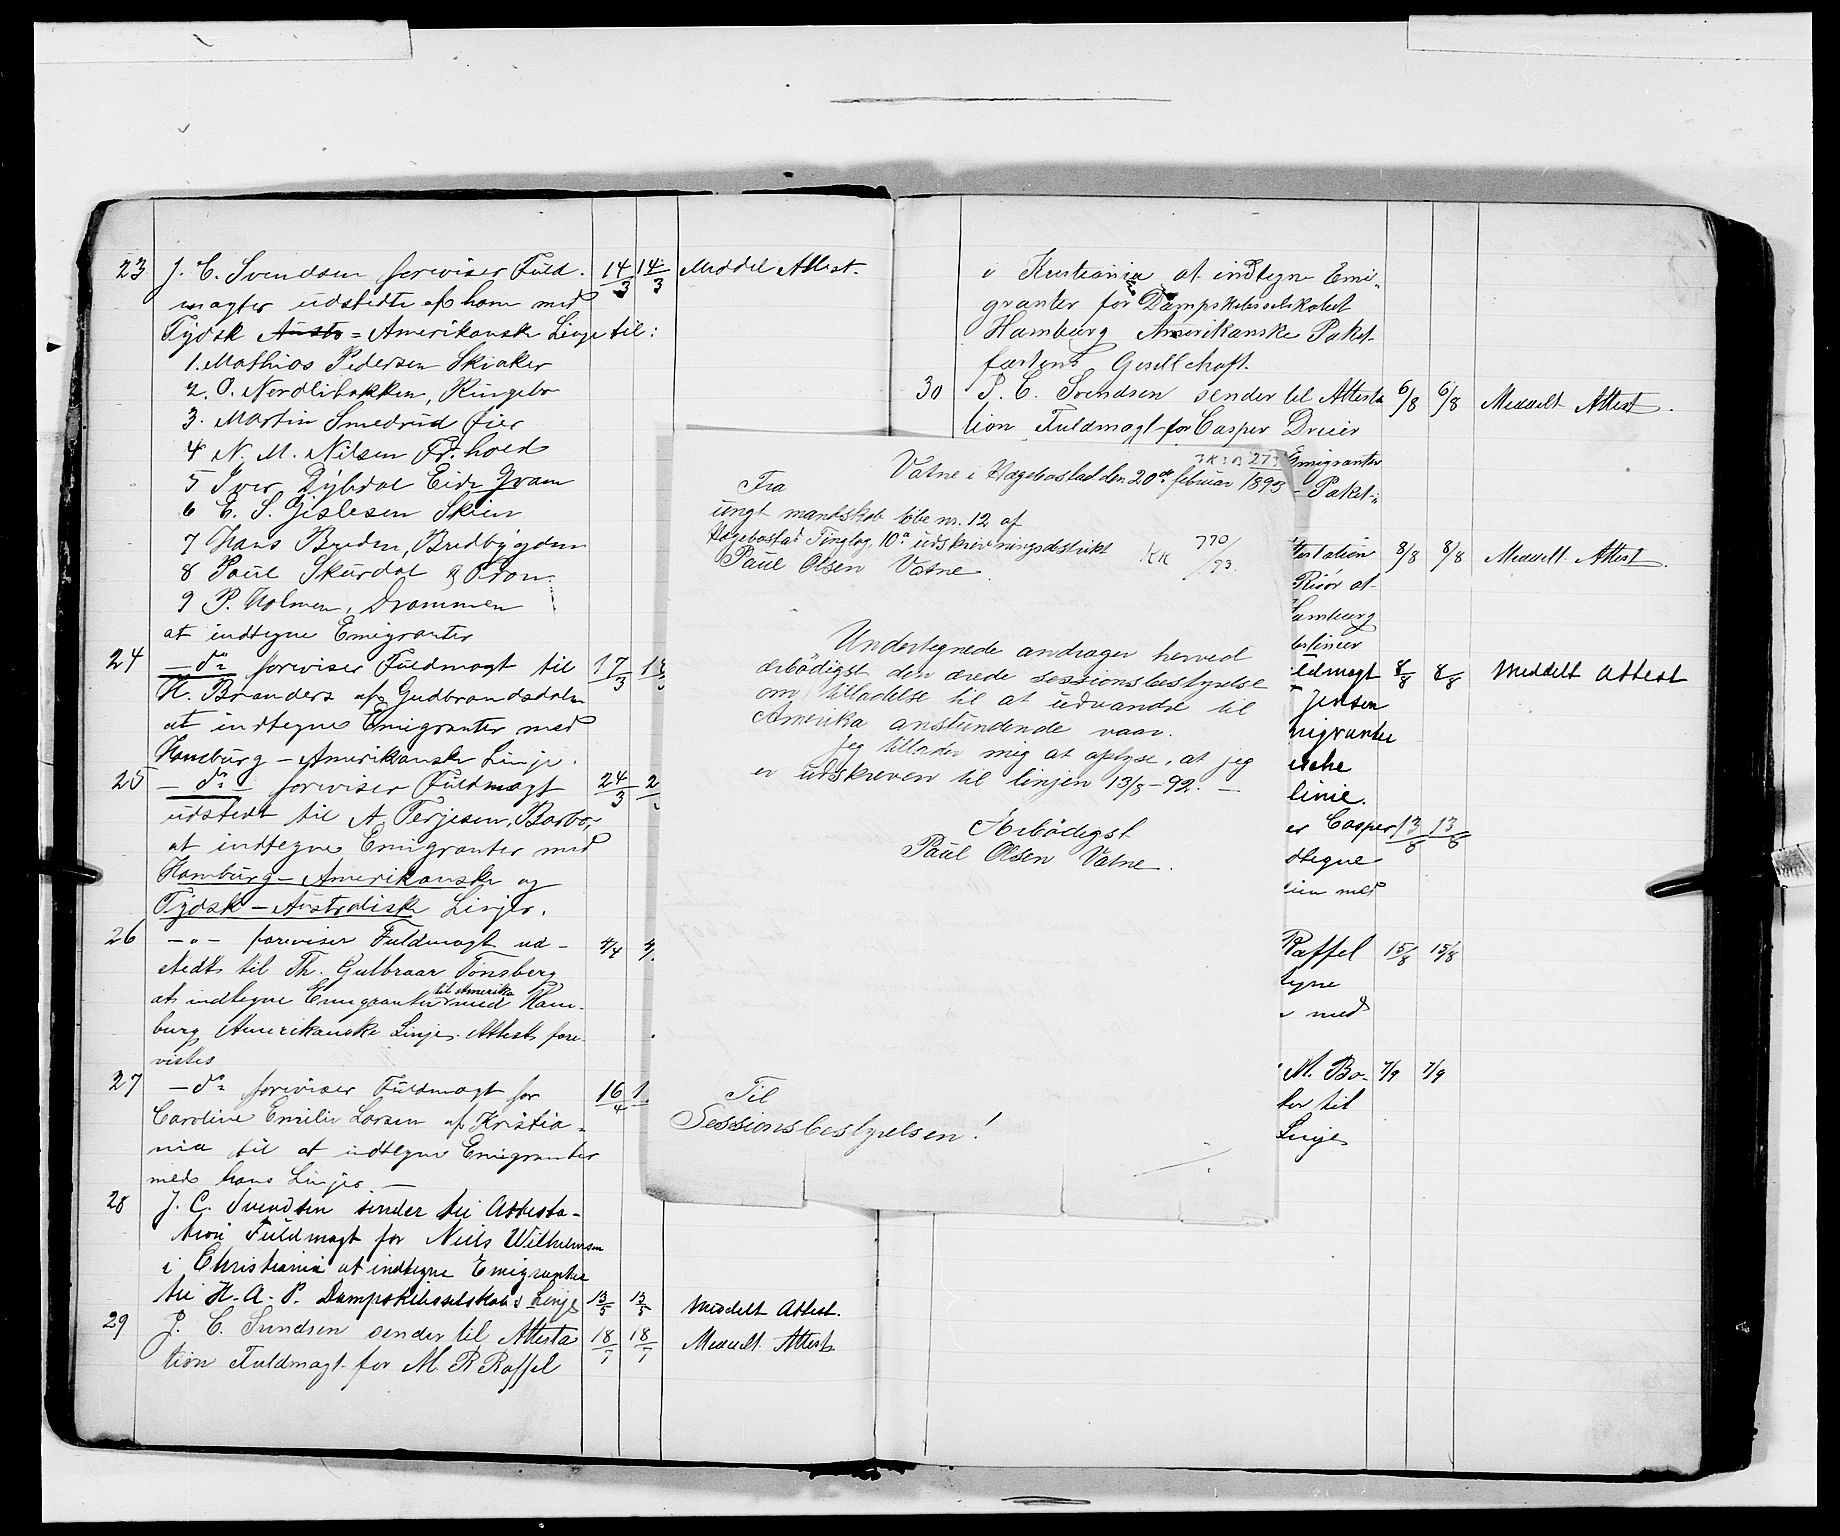 23 J. C. Svendsen foreviser Fuld- 14/3 14/3 Meddel Attest.
magter udstedte af ham med
Tydsk Austr = Amerikansk Linje til:
1. Mathias Pedersen Skiaker
2. O. Nordlibakken, Ringebo
3. Martin Smedrud Øier
4 N. M. Nilsen Fr.hald
5 Iver Eide Qvam
6 E. S. Gislesen Skien
7 Hans Breden, Bredbygden
8 Paul Skurdal Fron.
9 P. Holmen, Drammen
at indtegne Emigranter
24 - do foreviser Fuldmagt til 17/3
H. Branders af Gudbrandsdalen
at indtegne Emigranter med
Hamburg - Amerikansk Linje.
25 - do - foreviser Fuldmagt 24/3 2
udstedt til A. Terjesen, Barbo,
at indtegne Emigranter med
Hamburg - Amerikanske og
Tydsk - Australiske Linjer.
26 - " - foreviser Fuldmagt ud- 4/4
stedt til Th. Gulbraar Tønsberg
at indtegne Emigranter til Amerika med Ham-
burg Amerikanske Linje. Attest fore-
vistes
27 - do foreviser Fuldmagt for 16/4 1
Caroline Emilie Larsen af Kristia-
nia til at indtegne Emigranter
med hans Linjer -
28 J. C. Svendsen sender til Attesta-
tion Fuldmagt for Niels Wilhelmsen
i Christiania at indtegne Emigranter
til H. A. P. Dampskibsselskabs Linje 13/5 13/5 Meddelt Attest.
29 J. C. Svendsen sender til Attesta 18/7 18/7 Meddelt Attest
tion Fuldmagt for M. R Raffel
i Kristiania at indtegne Emi-
granter for Dampskibsselskabet
Hamburg Amerikanske Paket-
fartens Gesellschaft.
30 J. C. Svendsen sender til Attesta 6/8 6/8 Meddelt Attest.
tion Fuldmagt for Casper Dreier
Emigranter
- Paket-
testation 8/8 8/8 Meddelt Attest.
Risør at
Hamburg
ldmagt 8/8 8/8 Meddelt Attest
Jensen
migranter
linie.
er Casper 13/8 13/8
dtegne
med
Raffel 15/8 15/8
tegne
med
M. Bo- 7/9 7/9
ter til
Linje
Vatne i Hægebostad den 20de februar 1893
Fra
ungt mandskab løbe nr. 12 af
Hægebostad Tinglag, 10de udskrivningsdistrikt
Paul Olsen Vatne.
KK 770/93.
Undertegnede andrager herved
ærbødigst den ærede sessionsbestyrelse
om tilladelse til at udvandre til
Amerika anstundende vaar.
Jeg tillader mig at oplyse, at jeg
er udskreven til linjen 13/8 - 92. -
Ærbødigst
Paul Olsen Vatne.
Til
Sessionsbestyrelsen!